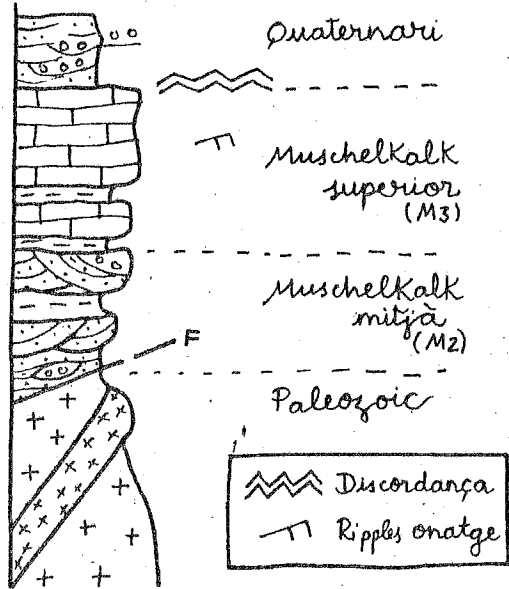 Quaternari
Muschelkalk
superior
(M3)
Muschelkalk
mitjà
(M2)
F
Paleozoic
Discordança
Ripples onatge